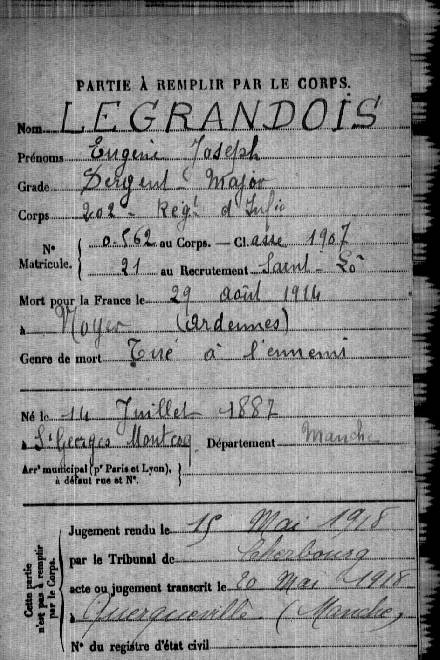 PARTIE À REMPLIR PAR LE CORPS.
Nom LEGRANDOIS
Prénoms Eugène Joseph
Grade Sergent-Major
Corps 202e Régt d'Infie
Nº Matricule. 0.562 au Corps. — Classe 1907
21 au Recrutement Saint-Lô
Mort pour la France le 29 août 1914
à Noyer (Ardennes)
Genre de mort Tué à l'ennemi
Né le 14 Juillet 1887
à St Georges Montcocq Département Manche
Arrt municipal (pr Paris et Lyon),
à défaut rue et Nº.
Cette partie
n'est pas à remplir
par le Corps.
Jugement rendu le 15 Mai 1918
par le Tribunal de Cherbourg
acte ou jugement transcrit le 20 Mai 1918
à Querqueville (Manche)
Nº du registre d'état civil